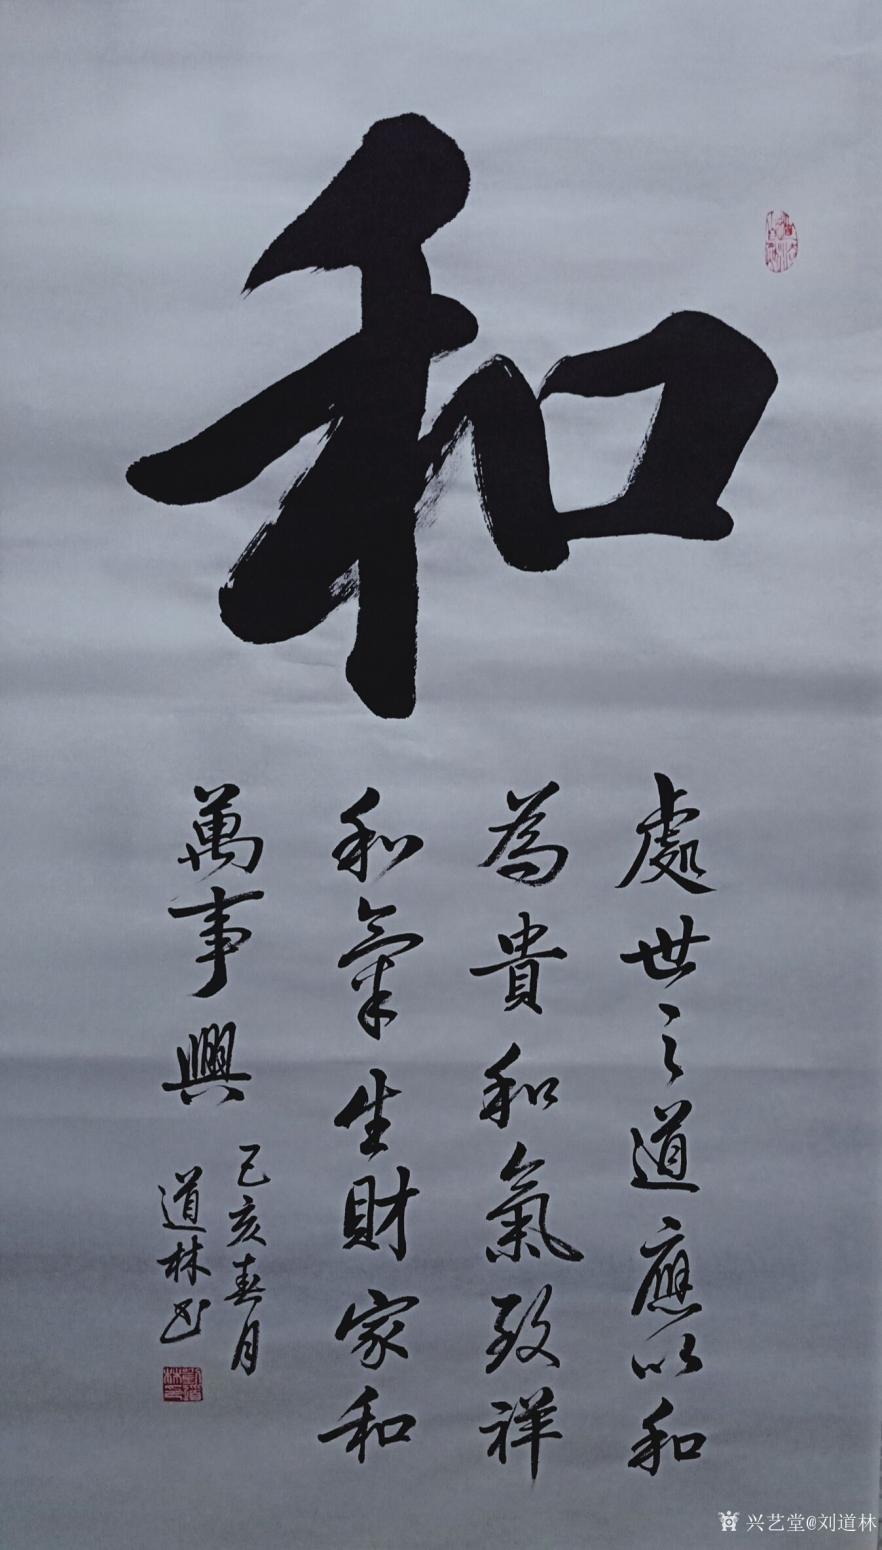 和
處世之道應以和
為貴和氣致祥
和氣生財家和
萬事興
己亥春月
道林书
兴艺堂@刘道林